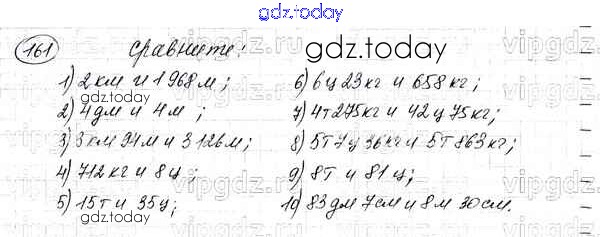 gdz.today
161 Сравните:
gdz.today
1) 2 км и 1 968 м; 6) 6 ц 23 кг и 658 кг;
gdz.today
2) 4 дм и 4 м ; 7) 4 т 275 кг и 42 ц 75 кг;
3) 3 км 94 м и 3 126 м; 8) 5 т 7 ц 36 кг и 5 т 863 кг;
4) 712 кг и 8 ц; 9) 8 т и 81 ц;
5) 15 т и 35 ц; 10) 83 дм 7 см и 8 м 30 см.
gdz.today
gdz.today
vipgdz.ru
vipgdz.ru